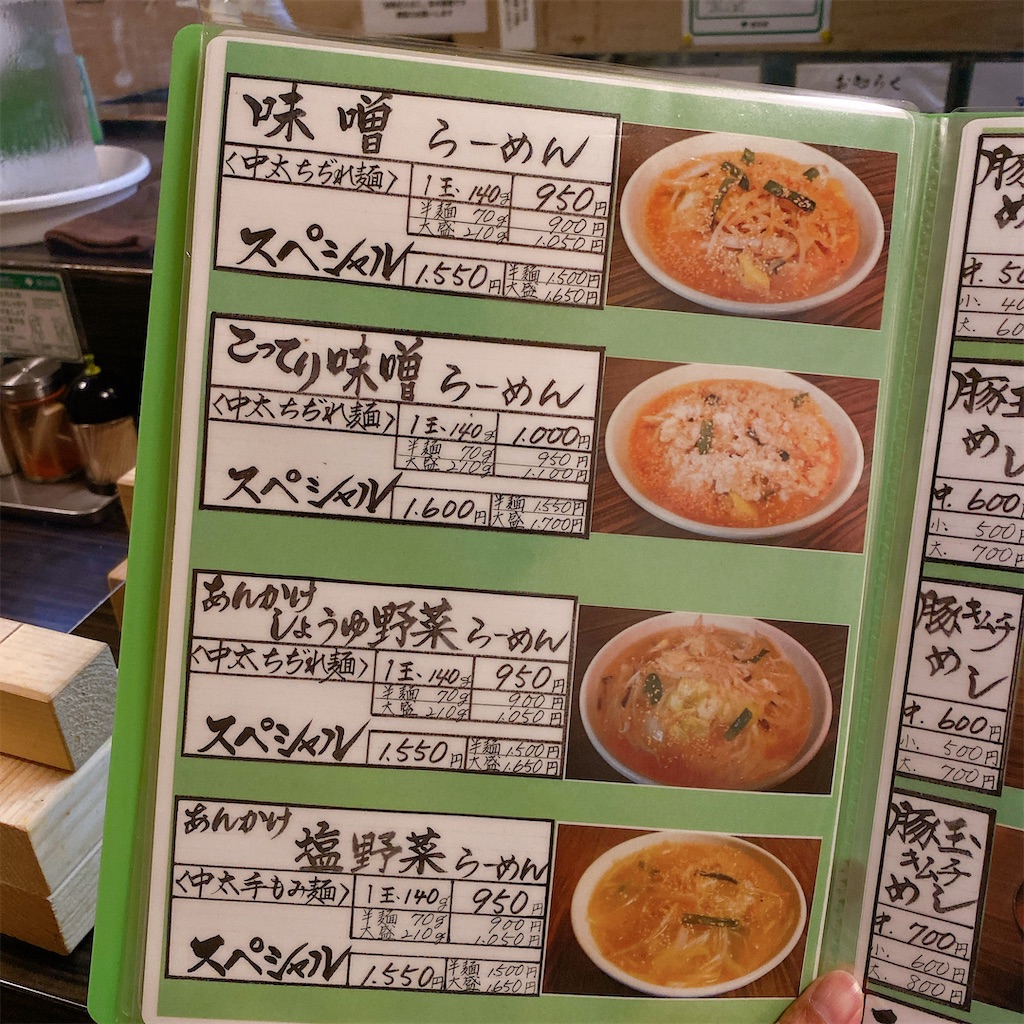 お知らせ
味噌らーめん
〈中太ちぢれ麺〉
1玉・140g 950円
半麺 70g 900円
大盛 210g 1.050円
スペシャル 1.550円
半麺 1.500円
大盛 1.650円
こってり味噌らーめん
〈中太ちぢれ麺〉
1玉・140g 1.000円
半麺 70g 950円
大盛 210g 1.100円
スペシャル 1.600円
半麺 1.550円
大盛 1.700円
あんかけ
しょうゆ野菜らーめん
〈中太ちぢれ麺〉
1玉・140g 950円
半麺 70g 900円
大盛 210g 1.050円
スペシャル 1.550円
半麺 1.500円
大盛 1.650円
あんかけ
塩野菜らーめん
〈中太手もみ麺〉
1玉・140g 950円
半麺 70g 900円
大盛 210g 1.050円
スペシャル 1.550円
半麺 1.500円
大盛 1.650円
豚
め
中.50
小.40
大.60
豚玉
めし
中.600円
小.500円
大.700円
豚キムチ
めし
中.600円
小.500円
大.700円
豚玉
キムチ
めし
中.700円
小.600円
大.800円